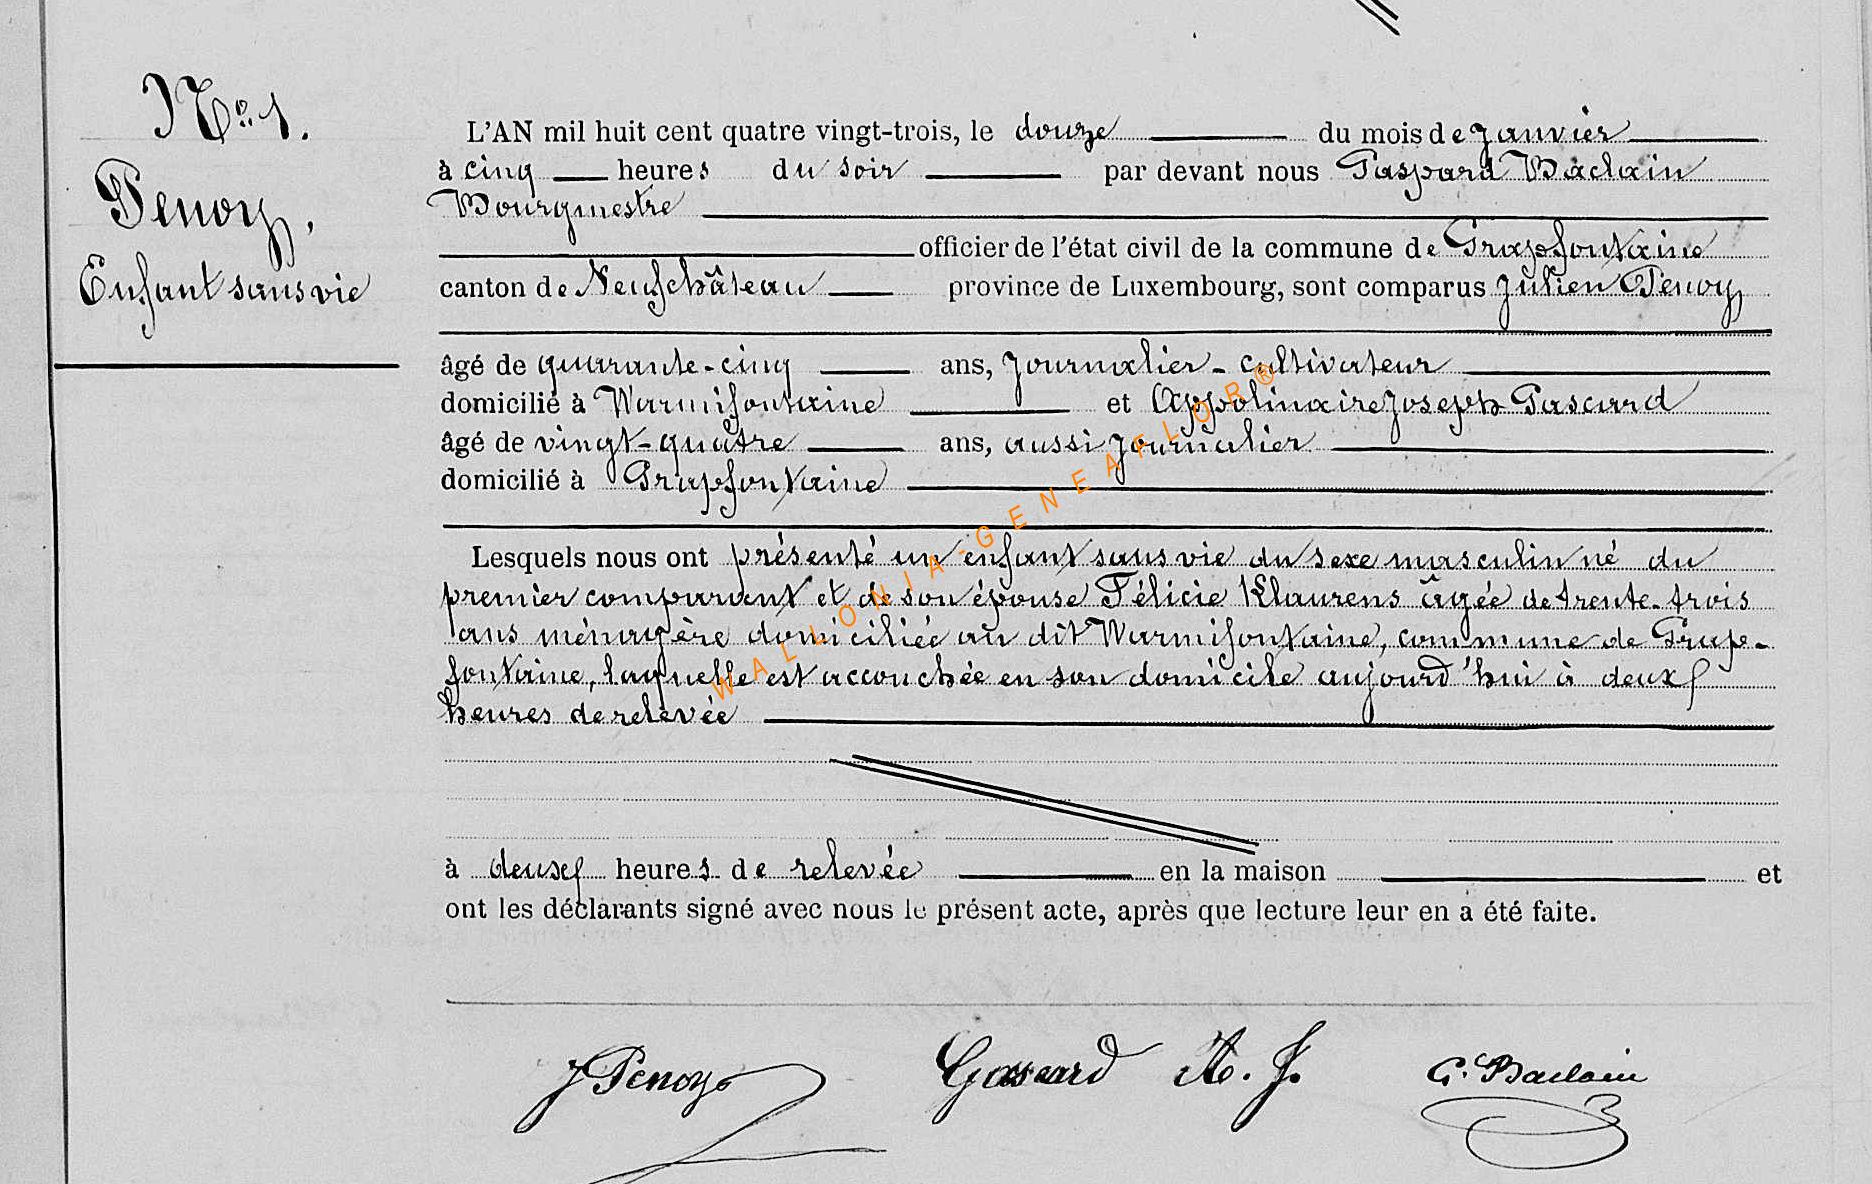 No 1.
Penoy,
Enfant sans vie
L'AN mil huit cent quatre vingt-trois, le douze du mois de Janvier
à cinq heures du soir par devant nous Gaspard Baclain
Bourgmestre
officier de l'état civil de la commune de Grapfontaine
canton de Neufchâteau province de Luxembourg, sont comparus Julien Penoy
âgé de quarante-cinq ans, Journalier-cultivateur
domicilié à Warmifontaine et Appolinaire Joseph Gascard
âgé de vingt-quatre ans, aussi journalier
domicilié à Grapfontaine
Lesquels nous ont présenté un enfant sans vie du sexe masculin né du
premier comparant et de son épouse Félicie Klaurens âgée de trente-trois
ans ménagère domiciliée au dit Warmifontaine, commune de Grap-
fontaine, laquelle est accouchée en son domicile aujourd'hui à deux
heures de relevée
à deux heures de relevée en la maison et
ont les déclarants signé avec nous le présent acte, après que lecture leur en a été faite.
J Penoy Gascard A. J. G. Baclain
WALLONIA-GENEAFLOR®